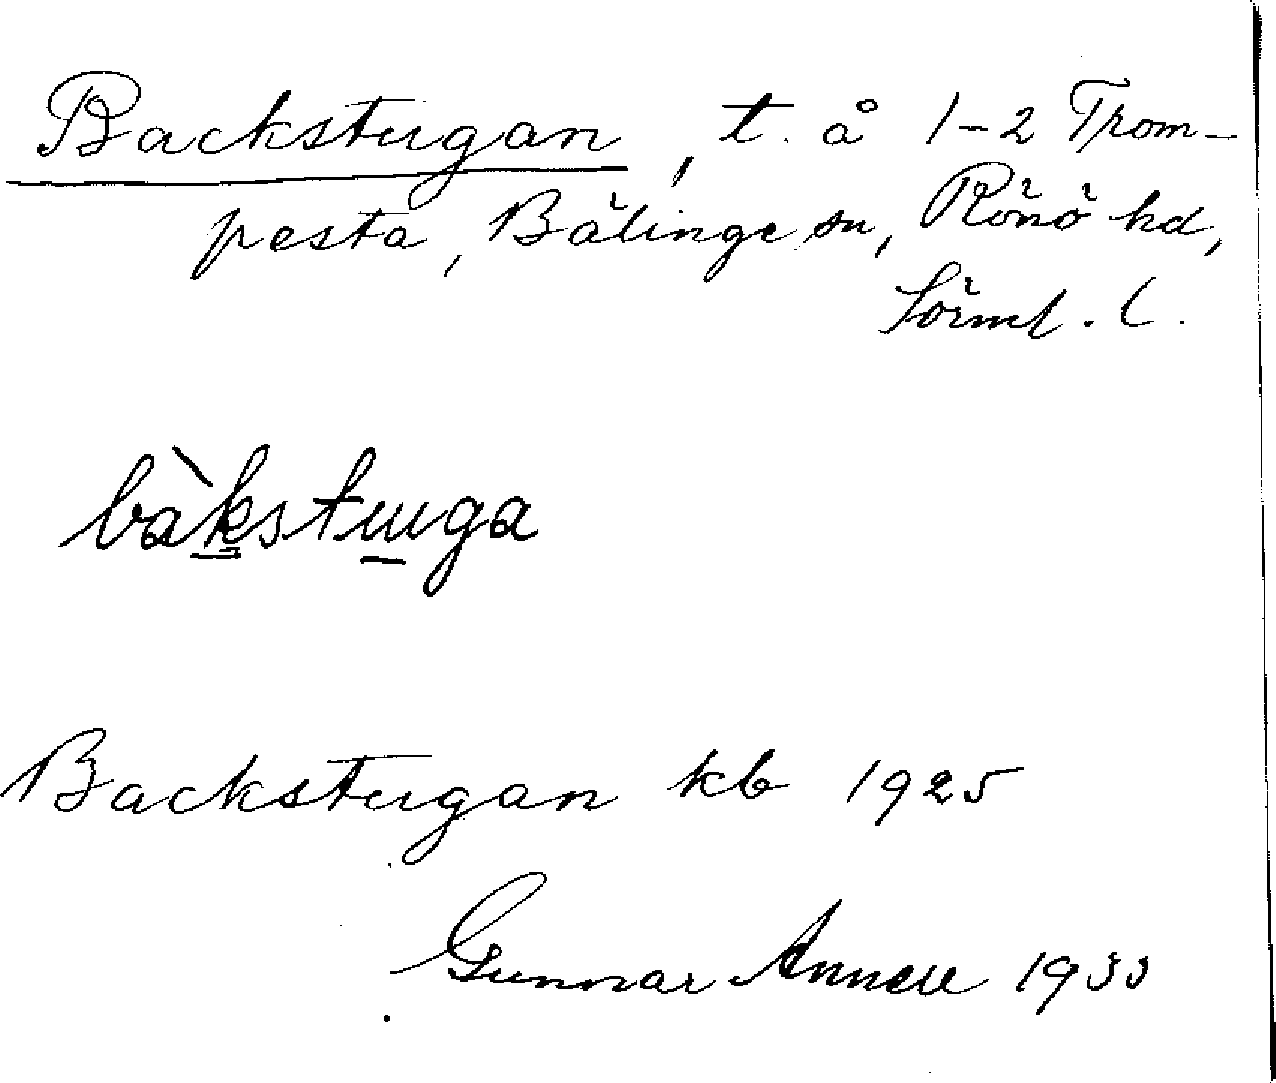 Backstugan, t. å 1-2 Trom-
pesta, Bälinge sn, Rönö hd,
Sörml. l.
bàkstuga
Backstugan kb 1925
Gunnar Annell 1933